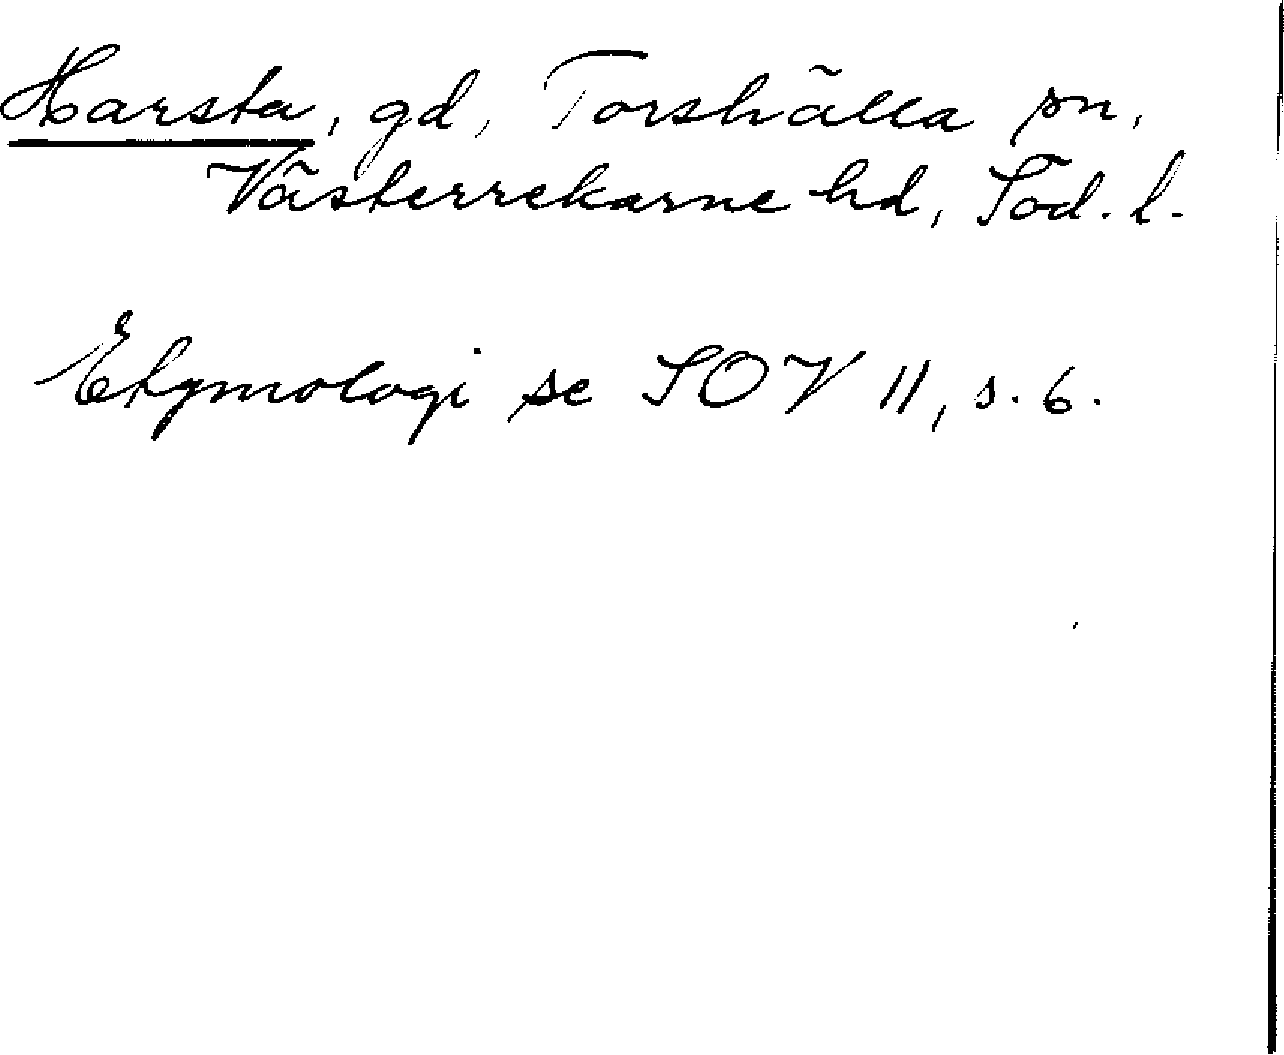 Harsta, gd, Torshälla sn,
Västerrekarne hd, Söd. l.
Etymologi se SOV 11, s. 6.